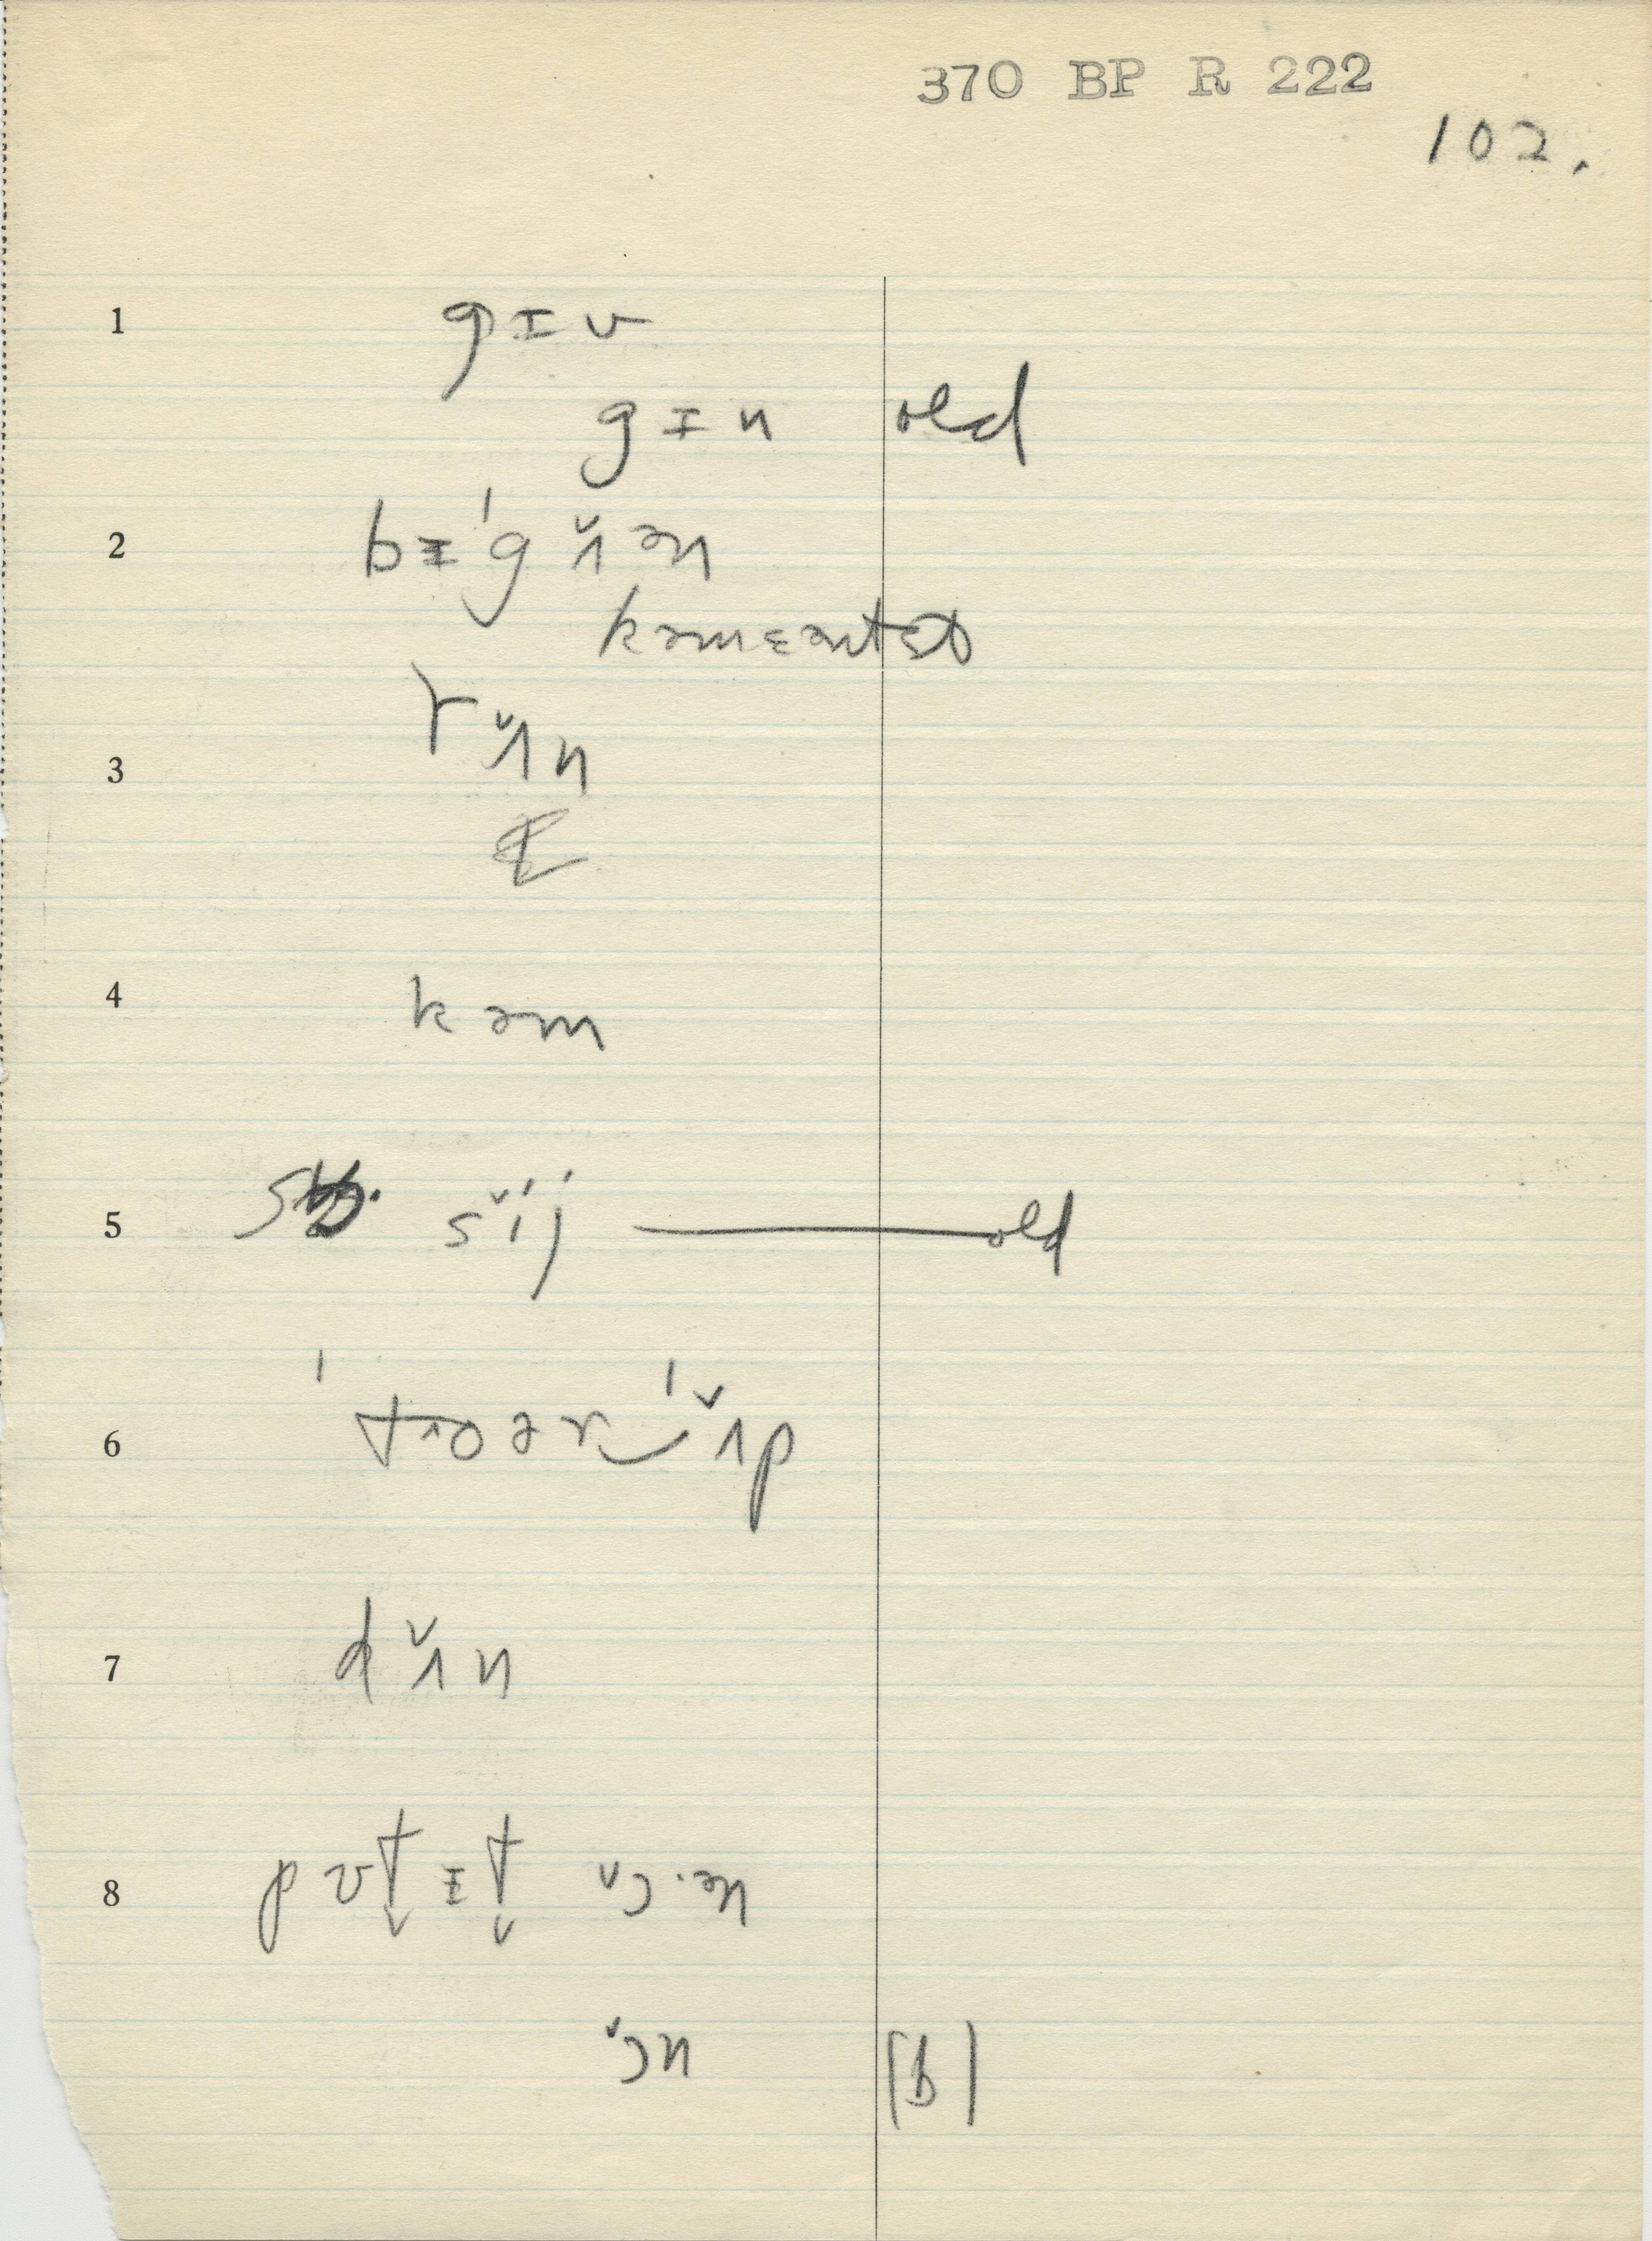 370 BP R 222
102.
1 gɪv
gɪn old
2 bɪˈgʌ̌ən
kəmɛəntɛd
rʌ̌n
3
4 kəm
5 sǐj — old
6 ˈtʌoərˈʌ̌p
7 dʌ̌n
8 pʊt̬ɪt̬ ɔ̌·ən
ɔ̌n [b]